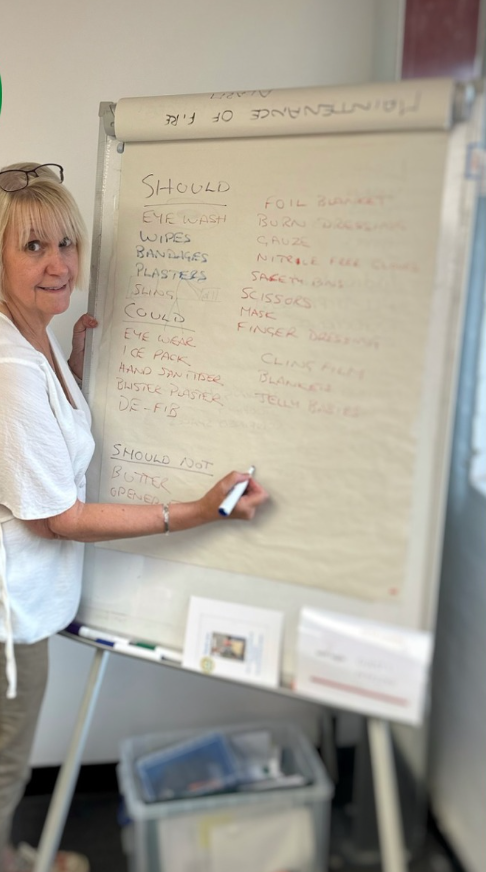 MAINTENANCE OF FIRE
SHOULD
EYE WASH
WIPES
BANDAGES
PLASTERS
SLING
COULD
EYE WEAR
ICE PACK
HAND SANITISER
BLISTER PLASTER
DE-FIB
SHOULD NOT
BUTTER
FOIL BLANKET
BURN DRESSING
GAUZE
NITRILE FREE
SAFETY PINS
SCISSORS
MASK
FINGER DRESSING
CLING FILM
BLANKET
JELLY BABIES